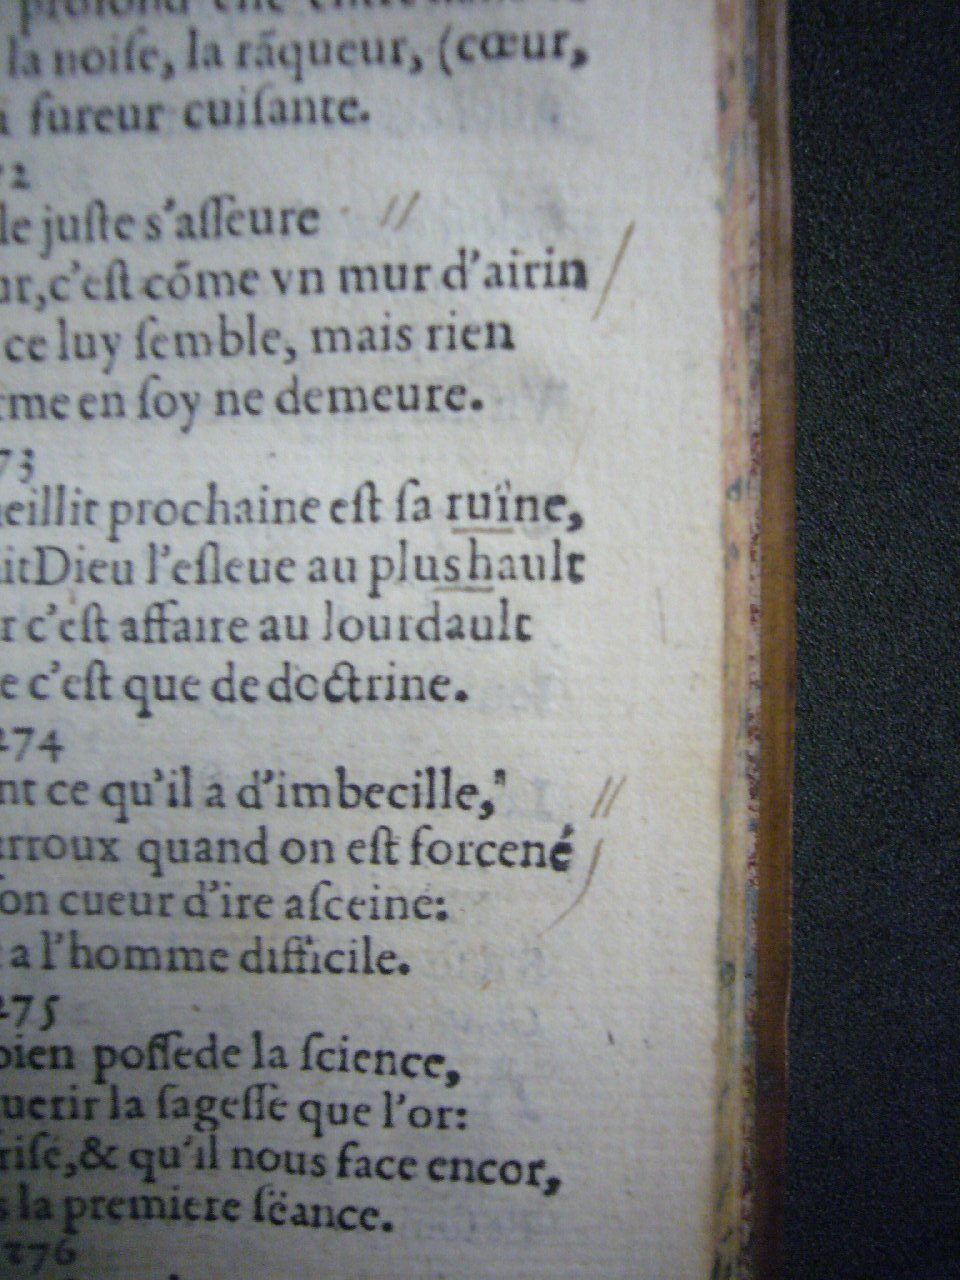 profond elle entre dans le
la noiſe, la rãqueur, (cœur,
a fureur cuiſante.
72
le juſte s'aſſeure
ur, c'eſt cõme vn mur d'airin
ce luy ſemble, mais rien
rme en ſoy ne demeure.
73
eillit prochaine eſt ſa ruïne,
it Dieu l'eſleue au plus hault
r c'eſt affaire au lourdault
e c'eſt que de doctrine.
274
nt ce qu'il a d'imbecille,
rroux quand on eſt forcené
on cueur d'ire aſceiné:
a l'homme difficile.
275
bien poſſede la ſcience,
uerir la ſageſſe que l'or:
riſé, & qu'il nous face encor,
s la premiere ſëance.
276